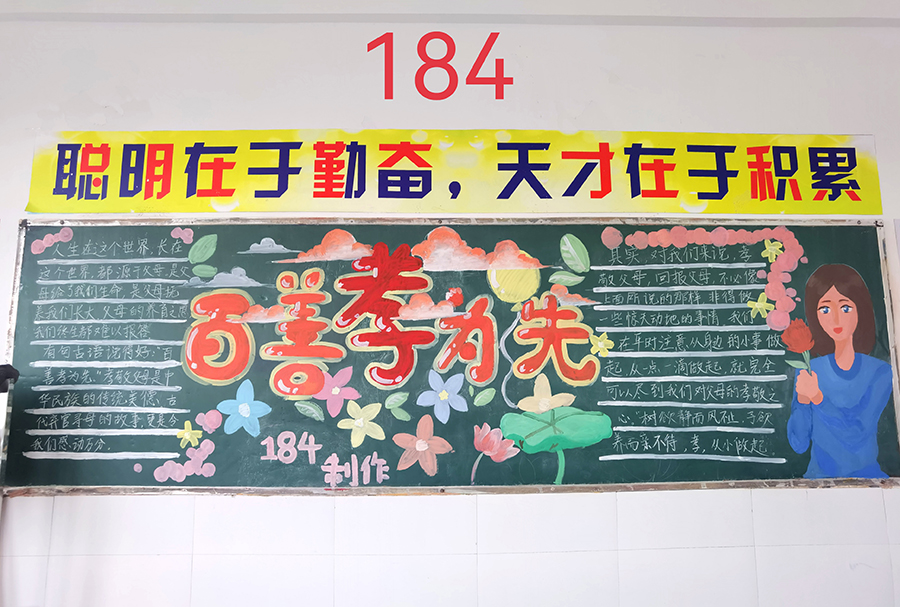 184
聪明在于勤奋，天才在于积累
百善孝为先
人生在这个世界，长在
这个世界，都源于父母，是父
母给了我们生命，是父母抚
养我们长大，父母的养育之恩
我们终生都难以报答
有句古语说得好：百
善孝为先，孝敬父母是中
华民族的传统美德，古
代弃官寻母的故事，更是令
我们感动万分
其实，对我们来说，孝
敬父母，回报父母，不必像
上面所说的那样，非得做
一些惊天动地的事情，我们
在平时注意，从身边的小事做
起，从一点一滴做起，就完全
可以尽到我们对父母的孝敬之
心“树欲静而风不止，子欲
养而亲不待，孝，从小做起
184
制作